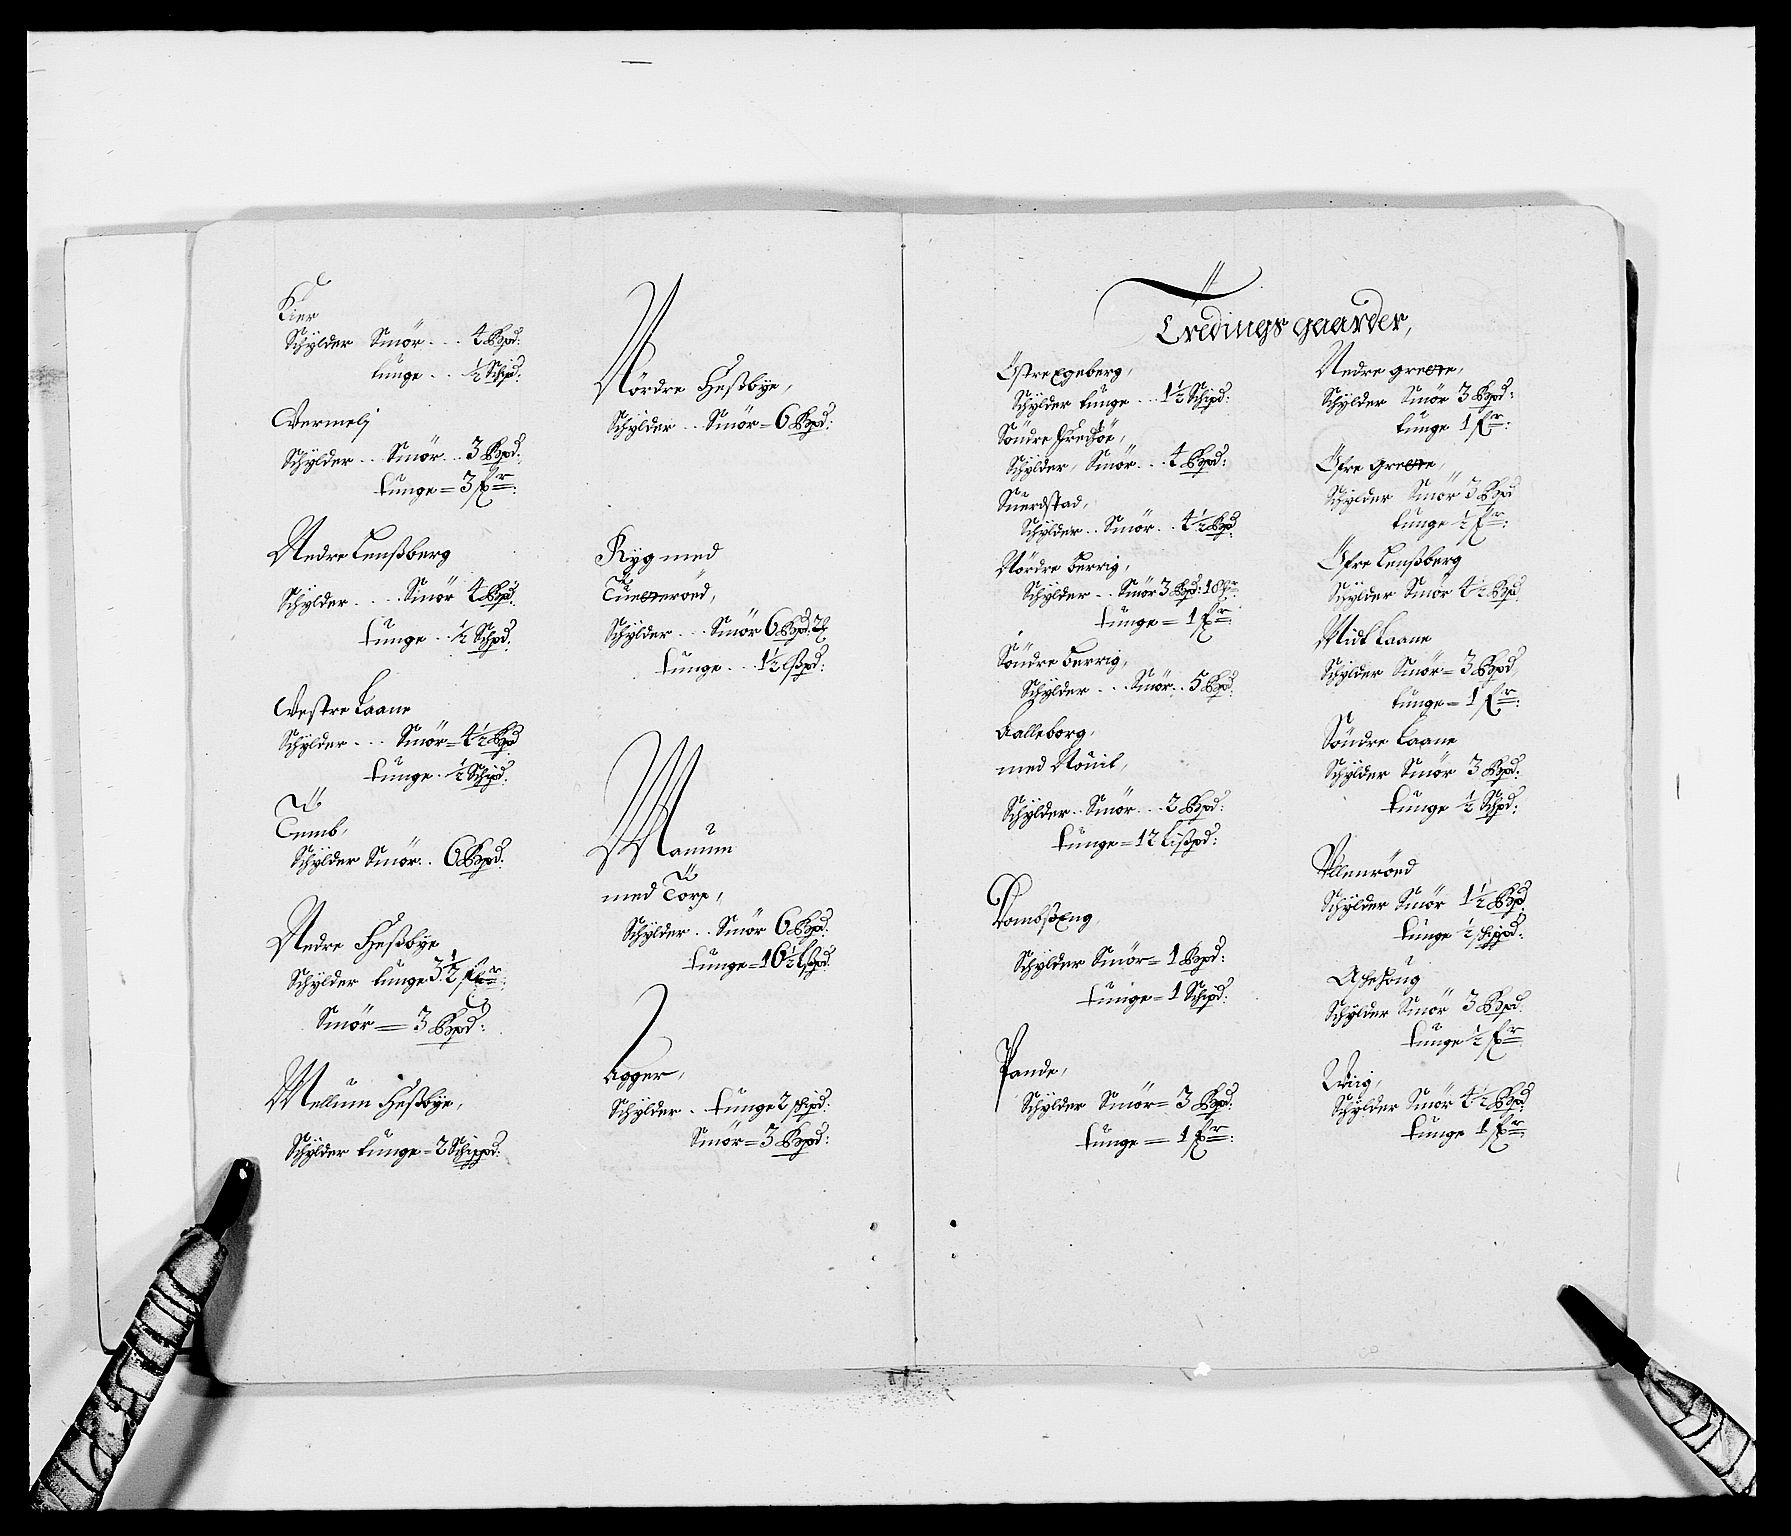 Kier
Schylder Smör . . . 4 Bpd:
tunge . . ½ Schpd:
Vermelj
Schylder . . Smör . . 3 Bpd:
tunge = 3 fr:
Nedre Lenßberg
Schylder . . . . Smör 4 Bpd:
tunge . . ½ Schpd:
Westre Laane
Schylder . . . Smör = 4½ Bpd
tunge . ½ Schpd:
Temb,
Schylder Smör . . 6 Bpd:
Nedre Heßbye
Schylder tunge 3½ fr:
Smör = 3 Bpd:
Mellum Heßbye,
Schylder tunge = 2 Schippd:
Nördre Heßbye,
Schylder . . Smör = 6 Bpd:
Ryg med
Schylder . . . Smör 6 Bpd: 2
tunge . . . 1½ lßpd:
Manum
med Torp,
Schylder . . Smör 6 Bpd:
tunge = 16½ lßpd:
Agger,
Schylder . . tunge 2 schpd:
Smör = 3 Bpd:
Ördings gaarder,
Östre Egeberg,
Schylder tunge . . . 1½ Schpd:
Söndre
Schylder, Smör . . . 4 Bpd:
Suerdstad,
Schylder . . Smör . . 4½ Bpd
Nördre Berrig,
Schylder . . Smör 3 Bpd: 18
tunge = 1 fr:
Söndre Berrig,
Schylder . . . Smör . . 5 Bpd:
Falleborg,
med
Schylder . . Smör . . . 2 Bpd:
tunge = 12 Lißpd:
RambßEng,
Schylder Smör = 1 Bpd:
tunge = 1 Schpd:
Rande,
Schylder Smör = 3 Bpd:
tunge = 1 fr:
Nedre greve,
Schylder Smör 3 Bpd:
tunge 1 fr:
Öfre Greve,
Schylder Smör 3 Bpd
tunge ½ fr:
Öfre Lenßberg
Schylder Smör 4½ Bpd
Midt Laane
Schylder Smör = 3 Bpd,
tunge = 1 fr:
Söndre Laane
Schylder Smör 3 Bpd:
tunge ½ Schpd:
Ullenröed
Schylder Smör 1½ Bpd
tunge ½ schippd:
Schylder Smör 3 Bpd:
tunge ½ fr
Wiig,
Schylder Smör 4½ Bpd:
tunge 1 fr